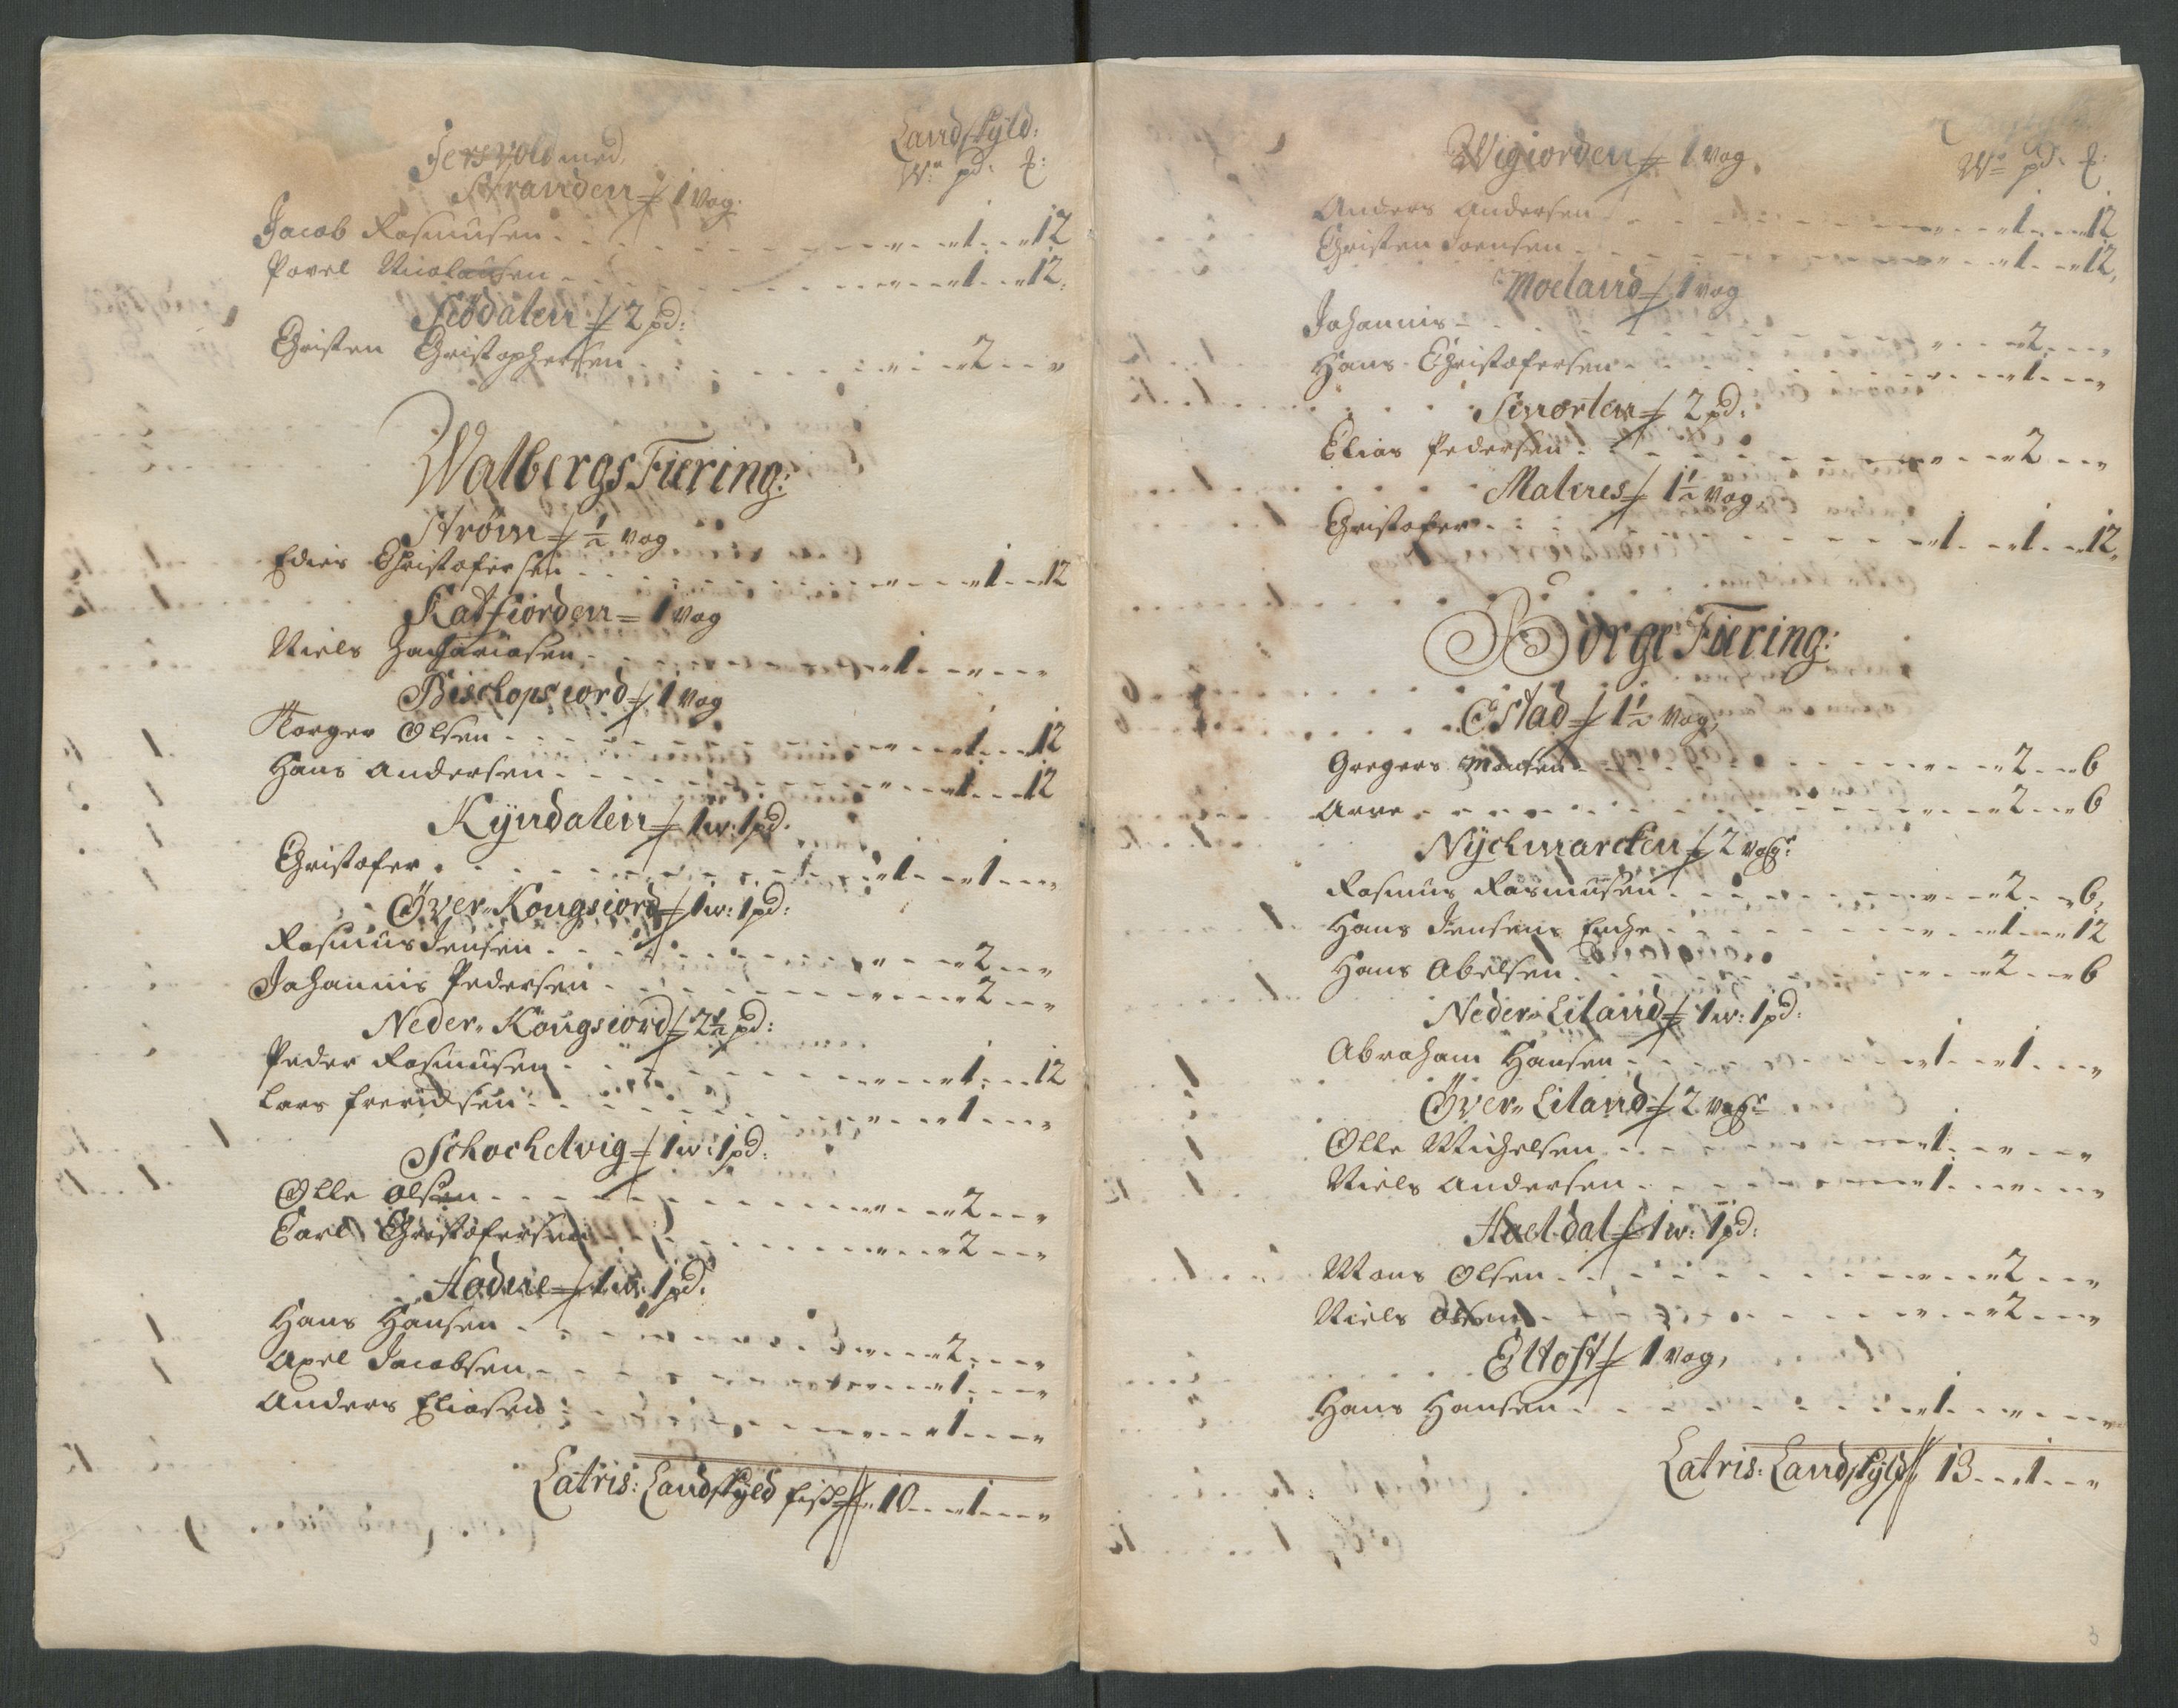 Jersvold med,
Landskyld:
Stranden 1 vog:
W: pd: :
Jacob Rasmusen - - - 1 - - 12
Povel Nicolausen - - - 1 - - 12
Siødalen 2 pd:
Christen Christophersen - - - 2 - -
Walbergs Fiering:
Strøm ½ vog
Edies Christofersen - - - 1 - - 12
Katfiorden = 1 vog
Niels Zachariasen - - - 1 - - -
Bischopsiord 1 vog
Torger Olsen - - - 1 - - 12
Hans Andersen - - - 1 - - 12
Kyndalen 1 w: 1 pd:
Christofer - - - 1 - - 1 - - -
Øver Kongsiord 1 w: 1 pd:
Rasmus Jensen - - - 2 - - -
Johannis Pedersen - - - 2 - - -
Neder Kongsiord 2½ pd:
Peder Rasmusen - - - 1 - - 12
Lars freridsen - - - 1 - - -
Schochetvig 1 w: 1 pd:
Olle Olsen - - - 2 - - -
Carl Christofersen - - - 2 - - -
Hadne 1 w: 1 pd:
Hans Hansen - - - 2 - - -
Axel Jacobsen - - - 1 - - -
Anders Eliasen - - - 1 - - -
Latris: Landskyld fisk 10 - - 1 - - -
Wigiorden 1 vog,
W: pd: :
Anders Andersen - - - 1 - - 12
Christen Joensen - - - 1 - - 12,
Moeland 1 vog
Johannis - - - 2 - - -
Hans Christofersen - - - 1 - - -
Smorten 2 pd:
Elias Pedersen - - - 2 - - -
Malnes 1½ vog:
Christofer - - - 1 - - 1 - - 12,
Borge Fiering:
Estad 1½ vog,
Gregers Monsen - - - 2 - - 6
Arve - - - 2 - - 6
Nyckmarcken 2 voger:
Rasmus Rasmusen - - - 2 - - 6,
Hans Jensens Encke - - - 1 - - 12
Hans Abelsen - - - 2 - - 6
Neder Liland 1 w: 1 pd:
Abraham Hansen - - - 1 - - 1 - - -
Øver Liland 2 voger
Olle Michelsen - - - 1 - - -
Niels Andersen - - - 1 - - -
Haeldal 1 w: 1 pd:
Mons Olsen - - - 2 - - -
Niels Olsen - - - 2 - - -
Eltoft 1 vog,
Hans Hansen - - - 1 - - -
Latris: Landskyld 13 - - 1 - - -
3